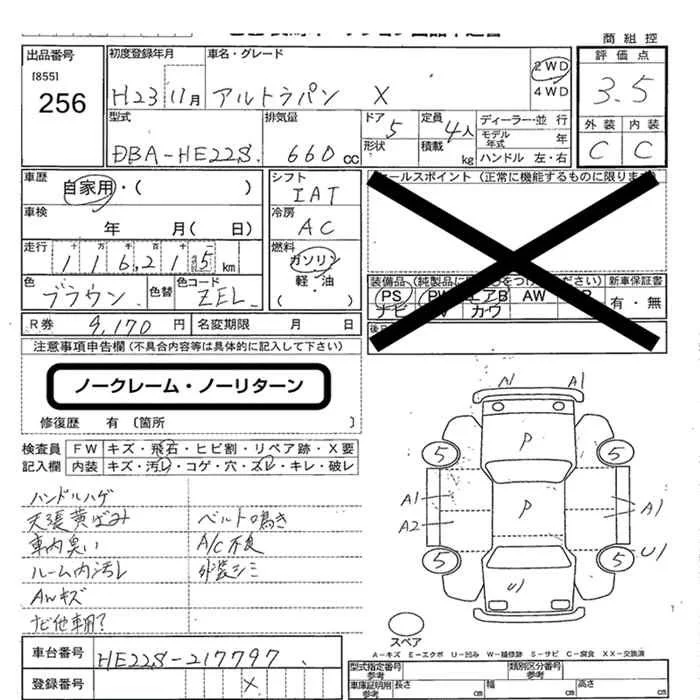 商 組 控
出品番号
[855]
256
初度登録年月
H23 11月
車名・グレード
アルトラパン X
2WD
4WD
評 価 点
3.5
外 装 内 装
C C
型式
DBA-HE22S
排気量
660 cc
ドア 5
形状
定員 4人
積載 kg
ディーラー・並 行
モデル年式 年
ハンドル 左・右
車歴
自家用・( )
シフト
IAT
セールスポイント (正常に機能するものに限ります
車検
年 月( 日)
冷房
AC
走行
十 万 千 百 十 一
116,215 km
燃料
ガソリン
軽・油
( )
色
ブラウン
色替
色コード
ZEL
装備品
新車保証書
PS PW エアB AW
ナビ カワ
有・無
R券 9,170 円
名変期限 月 日
注意事項申告欄 (不具合内容等は具体的に記入して下さい)
ノークレーム・ノーリターン
修復歴 有 〔箇所 〕
検査員
記入欄
FW キズ・飛石・ヒビ割・リペア跡・X要
内装 キズ・汚レ・コゲ・穴・スレ・キレ・破レ
ハンドルハゲ
天張黄ばみ ベルト鳴き
車内臭い A/C不良
ルーム内汚レ 外装シミ
AWキズ
ナビ他車用?
A1 A1
P
5 5
A1 P A1
A2
5 5 U1
U1
スペア
A-キズ E-エクボ U-凹み W-補修跡 S-サビ C-腐食 XX-交換済
車台番号 HE22S-217797
登録番号 X
型式指定番号
参考
類別区分番号
参考
車庫証明用
参考
長さ cm 幅 cm 高さ cm